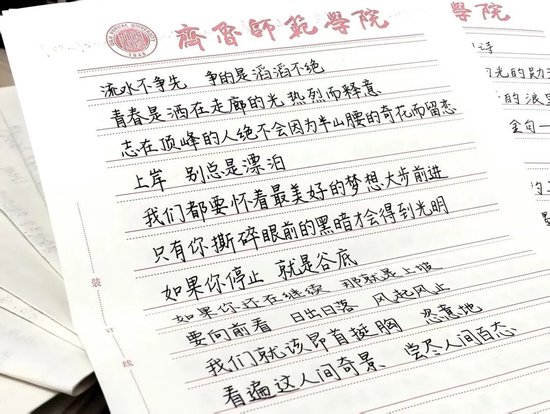 齊魯師範學院
流水不争先 争的是滔滔不绝
青春是洒在走廊的光 热烈而释意
志在顶峰的人绝不会因为半山腰的奇花而留恋
上岸 别总是漂泊
我们都要怀着最美好的梦想大步前进
只有你撕碎眼前的黑暗才会得到光明
如果你停止 就是谷底
如果你还在继续 那就是上坡
要向前看 日出日落 风起风止
我们就该昂首挺胸 恣意地
看遍这人间奇景 尝尽人间百态
装
订
线
範學院
诗
光的
的浪
金句一
1948